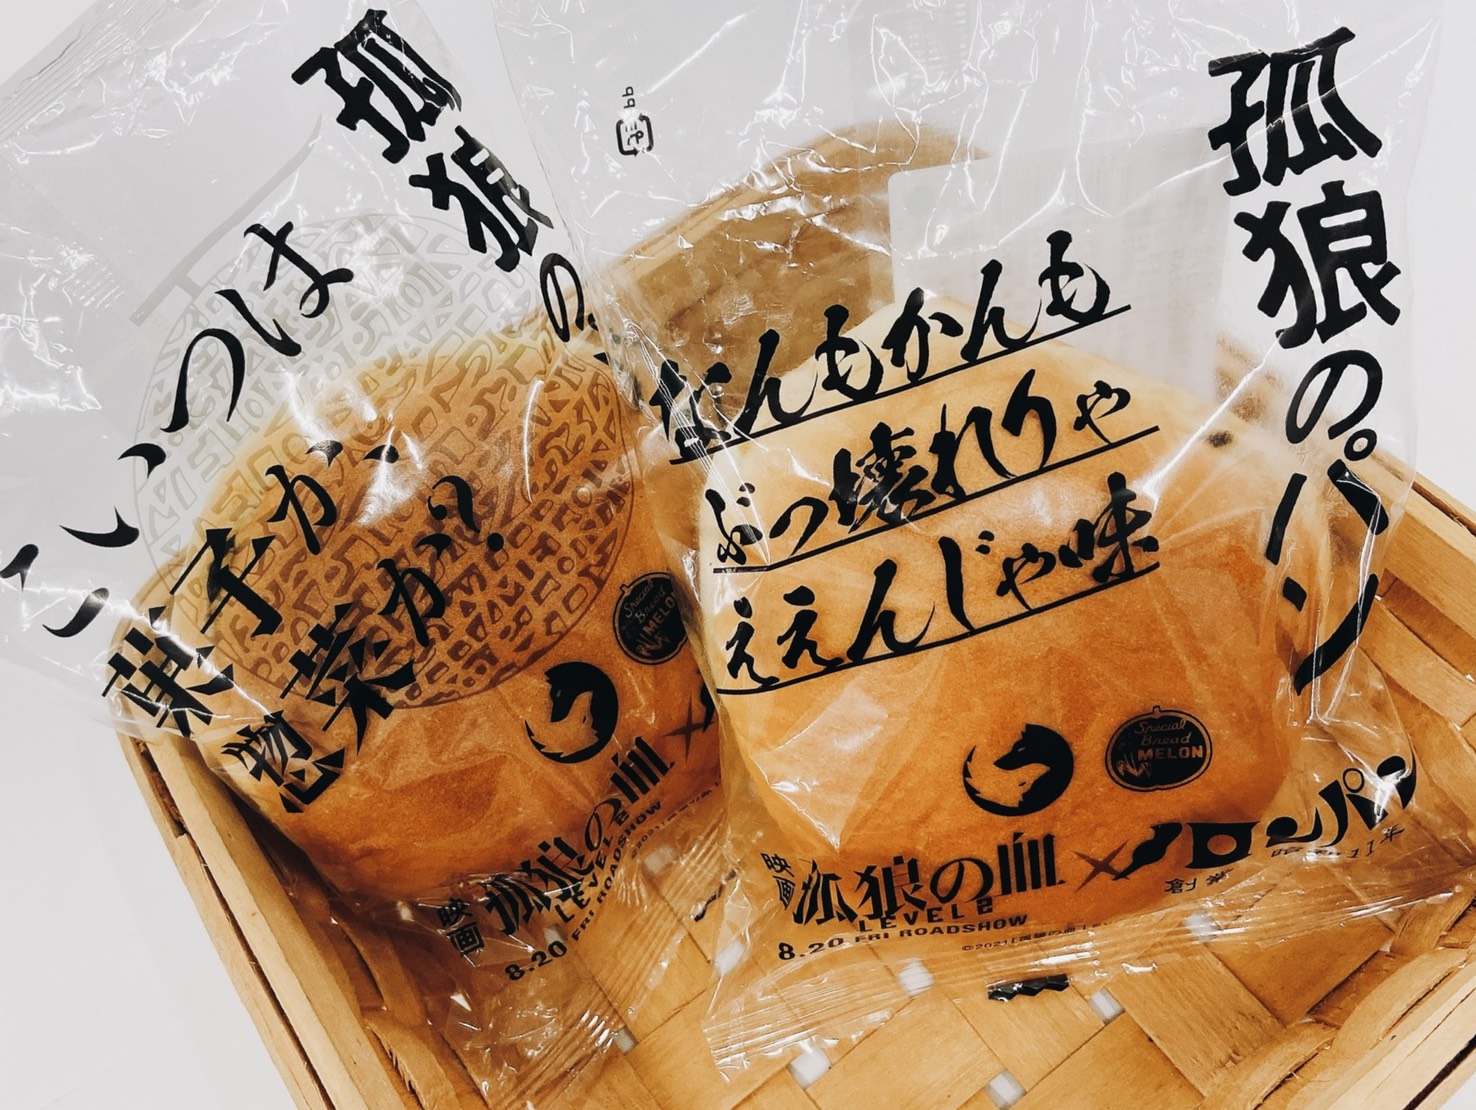 孤狼の
こいつは
菓子か、
惣菜か?
Special
Bread
MELON
映画
孤狼の血
LEVEL2
8.20 FRI ROADSHOW
×
プラ
孤狼のパン
なんもかんも
ぶっ壊れりゃ
ええんじゃ味
Special
Bread
MELON
映画
孤狼の血×メロンパン
LEVEL2
創業昭和11年
8.20 FRI ROADSHOW
©2021「孤狼の血